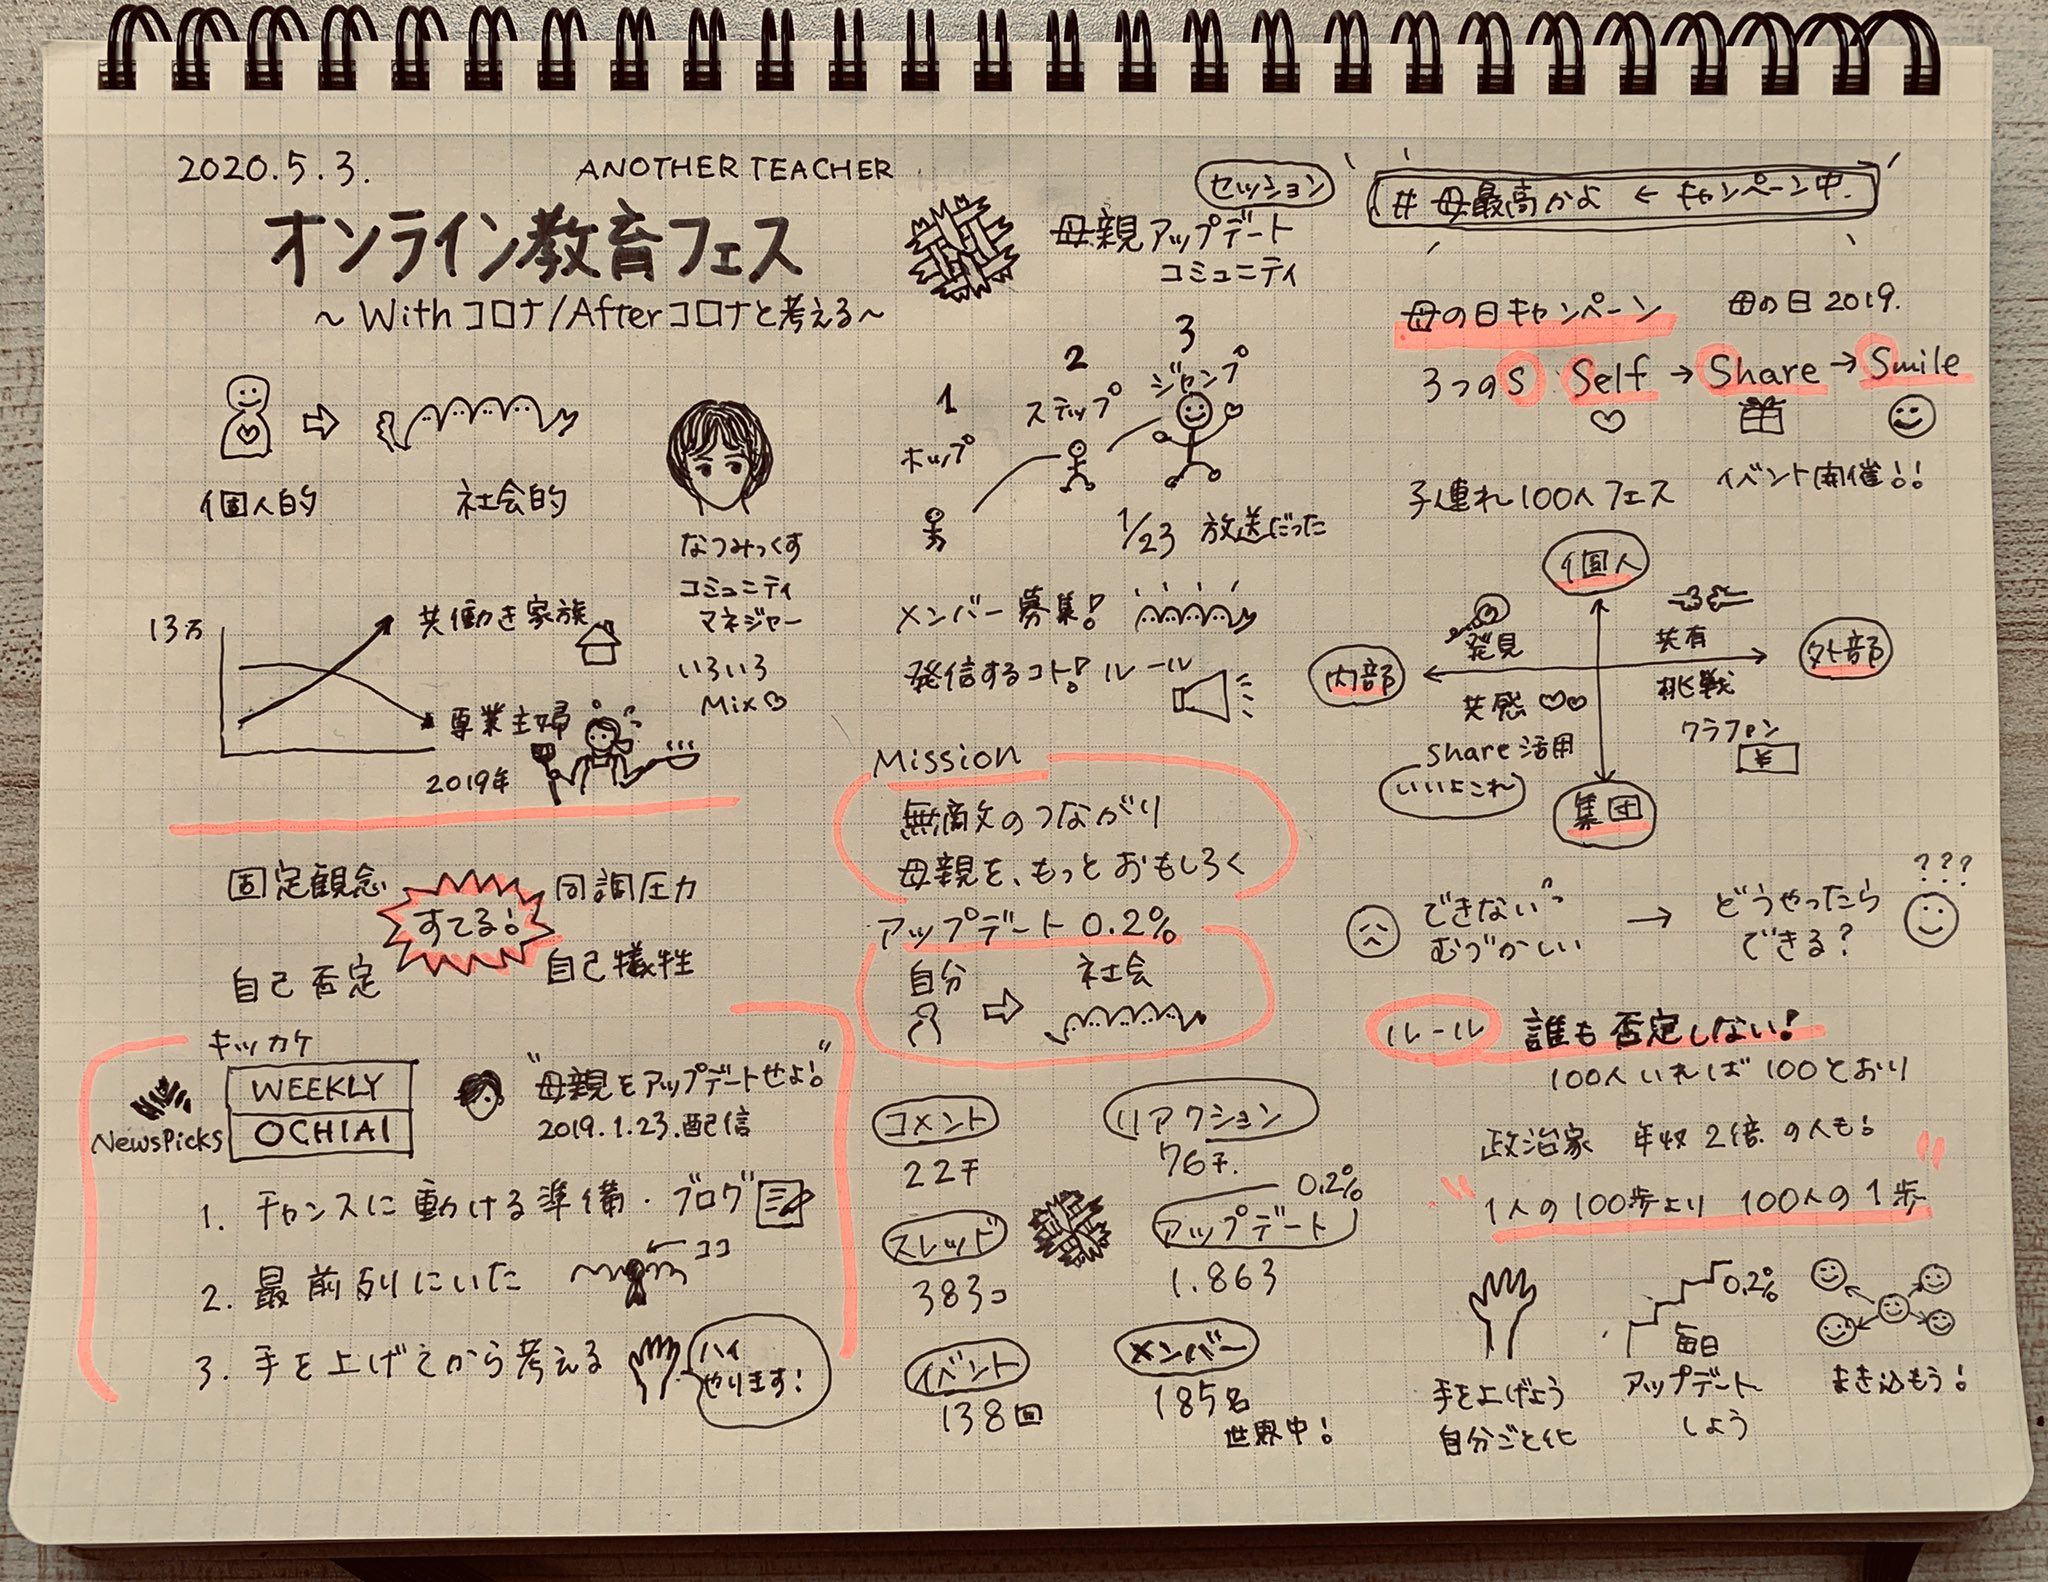 2020.5.3.
ANOTHER TEACHER
オンライン教育フェス
〜Withコロナ/Afterコロナと考える〜
個人的
社会的
なつみっくす
コミュニティ
マネジャー
いろいろ
Mix
13万
共働き家族
専業主婦
2019年
固定観念
同調圧力
すてる!
自己否定
自己犠牲
キッカケ
NewsPicks
WEEKLY
OCHIAI
"母親をアップデートせよ!"
2019.1.23.配信
1. チャンスに動ける準備・ブログ
2. 最前列にいた
←ココ
3. 手を上げてから考える
ハイ
やります!
セッション
母親アップデート
コミュニティ
1
ホップ
2
ステップ
3
ジャンプ
1/23 放送だった
メンバー募集!
発信するコト! ルール
Mission
無敵のつながり
母親を、もっとおもしろく
アップデート 0.2%
自分
社会
コメント
22千
リアクション
76千.
スレッド
383コ
0.2%
アップデート
1.863
イベント
138回
メンバー
185名
世界中!
#母最高かよ ← キャンペーン中.
母の日キャンペーン
母の日2019.
3つのS Self → Share → Smile
子連れ100人フェス
イベント開催!!
個人
発見
共有
内部
外部
共感
挑戦
クラファン
¥
share活用
いいよこれ
集団
できない
むづかしい
→
どうやったら
できる?
???
ルール
誰も否定しない!
100人いれば100とおり
政治家 年収2倍の人も!
"1人の100歩より 100人の1歩"
手を上げよう
自分ごと化
0.2%
毎日
アップデート
しよう
まき込もう!